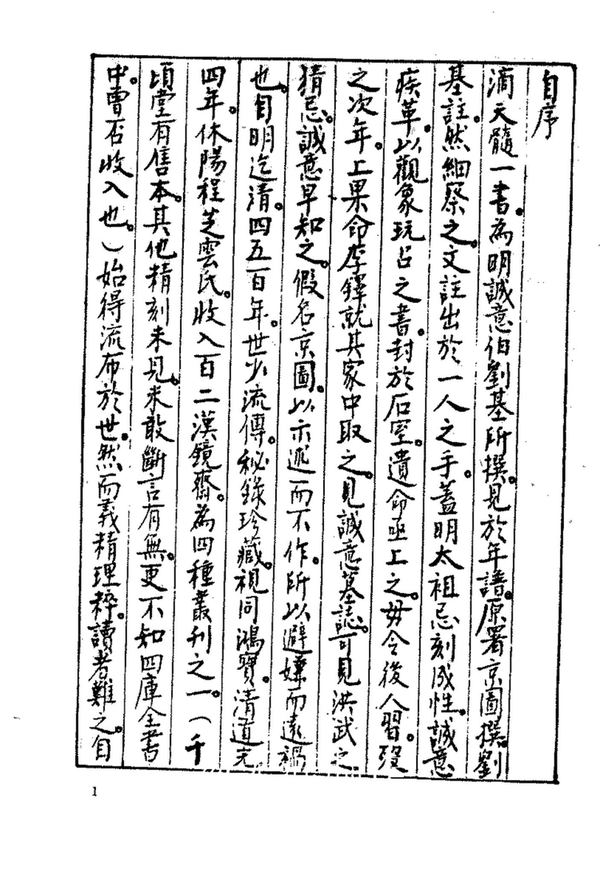 自序
滴天髓一書。為明誠意伯劉基所撰。見於年譜。原署京圖撰。劉
基註。然細察之。文註出於一人之手。蓋明太祖忌刻成性。誠意
疾革。以觀象玩占之書。封於石室。遺命亟上之。毋令後人習。歿
之次年。上果命李鐸就其家中取之。見誠意墓誌。可見洪武之
猜忌。誠意早知之。假名京圖。以示述而不作。所以避嫌而遠禍
也。自明迄清。四五百年。世少流傳。秘錄珍藏。視同鴻寶。清道光
四年。休陽程芝雲氏。收入百二漢鏡齋。為四種叢刊之一。（千
頃堂有售本。其他精刻未見。未敢斷言有無。更不知四庫全書
中。曾否收入也。）始得流布於世。然而義精理粹。讀者難之。自
1